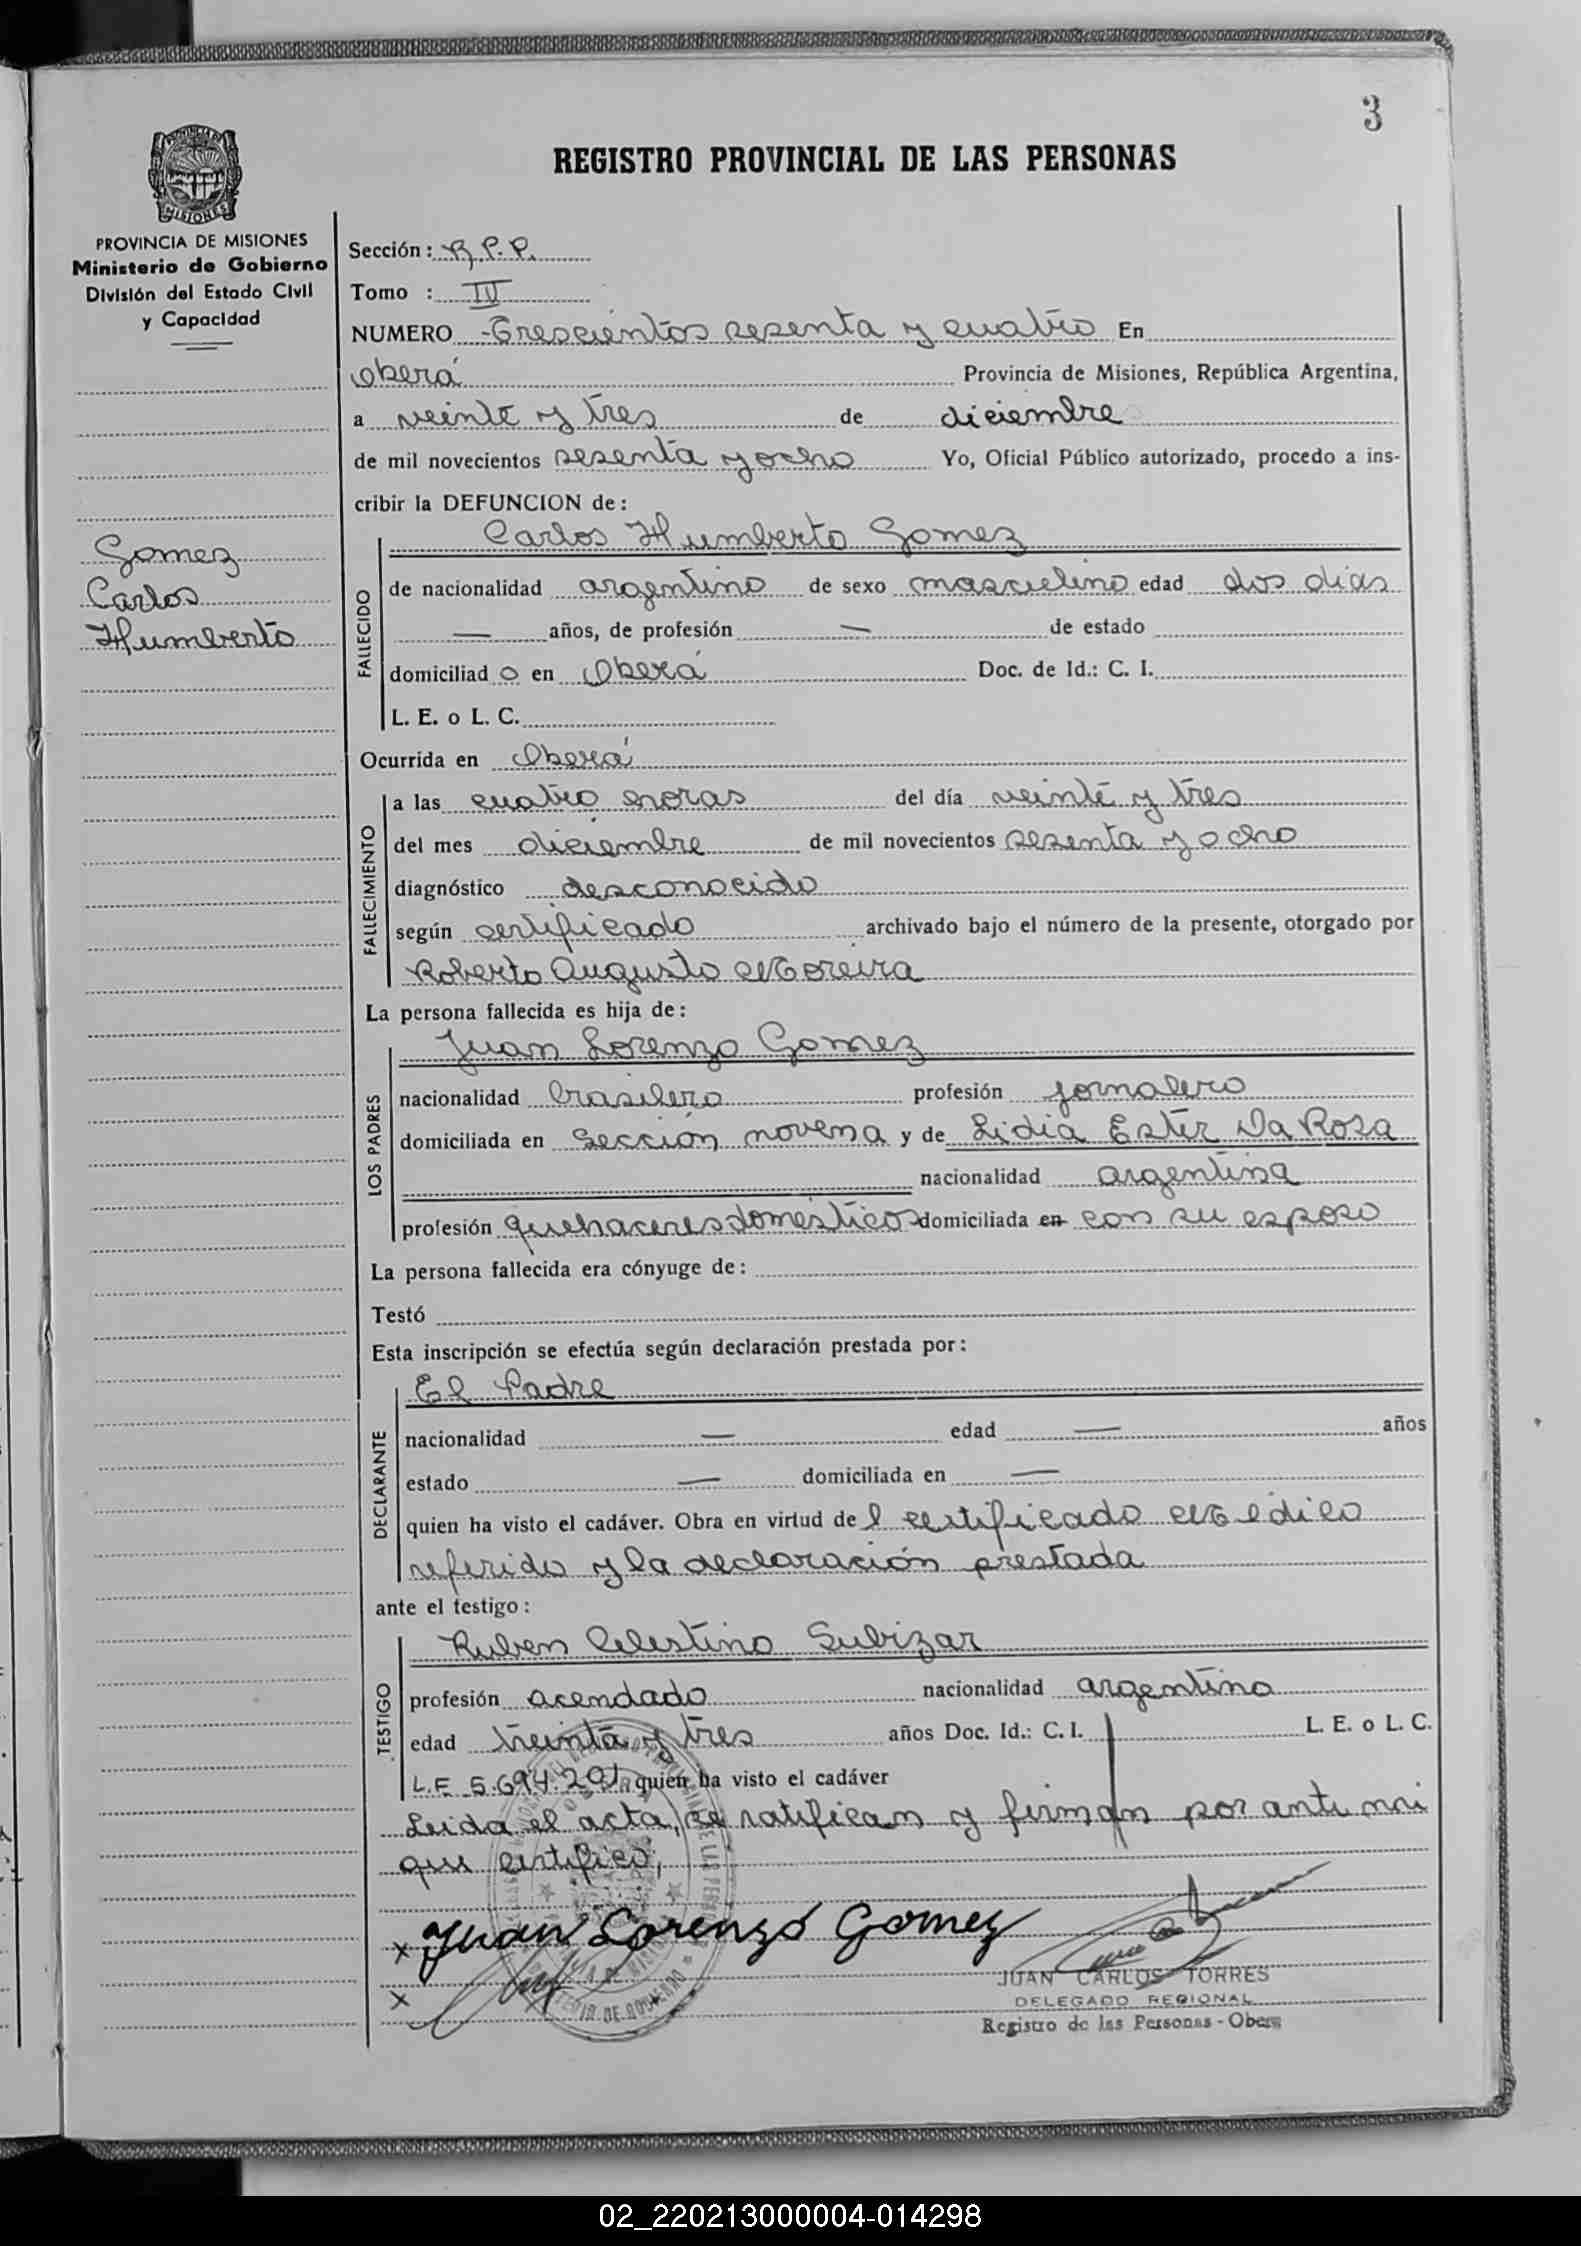 3
REGISTRO PROVINCIAL DE LAS PERSONAS
PROVINCIA DE MISIONES
Ministerio de Gobierno
División del Estado Civil
y Capacidad
Gomez
Carlos
Humberto
Sección: R.P.P.
Tomo : IV
NUMERO - Trescientos sesenta y cuatro En
Oberá Provincia de Misiones, República Argentina,
a veinte y tres de diciembre
de mil novecientos sesenta y ocho Yo, Oficial Público autorizado, procedo a ins-
cribir la DEFUNCION de:
Carlos Humberto Gomez
FALLECIDO
de nacionalidad argentino de sexo masculino edad dos dias
— años, de profesión — de estado
domiciliad o en Oberá Doc. de Id.: C. I.
L. E. o L. C.
Ocurrida en Oberá
FALLECIMIENTO
a las cuatro horas del día veinte y tres
del mes diciembre de mil novecientos sesenta y ocho
diagnóstico desconocido
según certificado archivado bajo el número de la presente, otorgado por
Roberto Augusto Moreira
La persona fallecida es hija de:
Juan Lorenzo Gomez
LOS PADRES
nacionalidad brasilero profesión jornalero
domiciliada en Sección novena y de Lidia Ester Da Rosa
nacionalidad argentina
profesión quehaceres domésticos domiciliada en con su esposo
La persona fallecida era cónyuge de:
Testó
Esta inscripción se efectúa según declaración prestada por:
El Padre
DECLARANTE
nacionalidad — edad — años
estado — domiciliada en —
quien ha visto el cadáver. Obra en virtud de l certificado Médico
referido y la declaración prestada
ante el testigo:
Ruben Celestino Subizar
TESTIGO
profesión acendado nacionalidad argentino
edad treinta y tres años Doc. Id.: C. I. L. E. o L. C.
L.E. 5.694.201 quien ha visto el cadáver
Leida el acta, se ratifican y firman por ante mi
que certifico,
x Juan Lorenzo Gomez
x
JUAN CARLOS TORRES
DELEGADO REGIONAL
Registro de las Personas - Obera
02_220213000004-014298